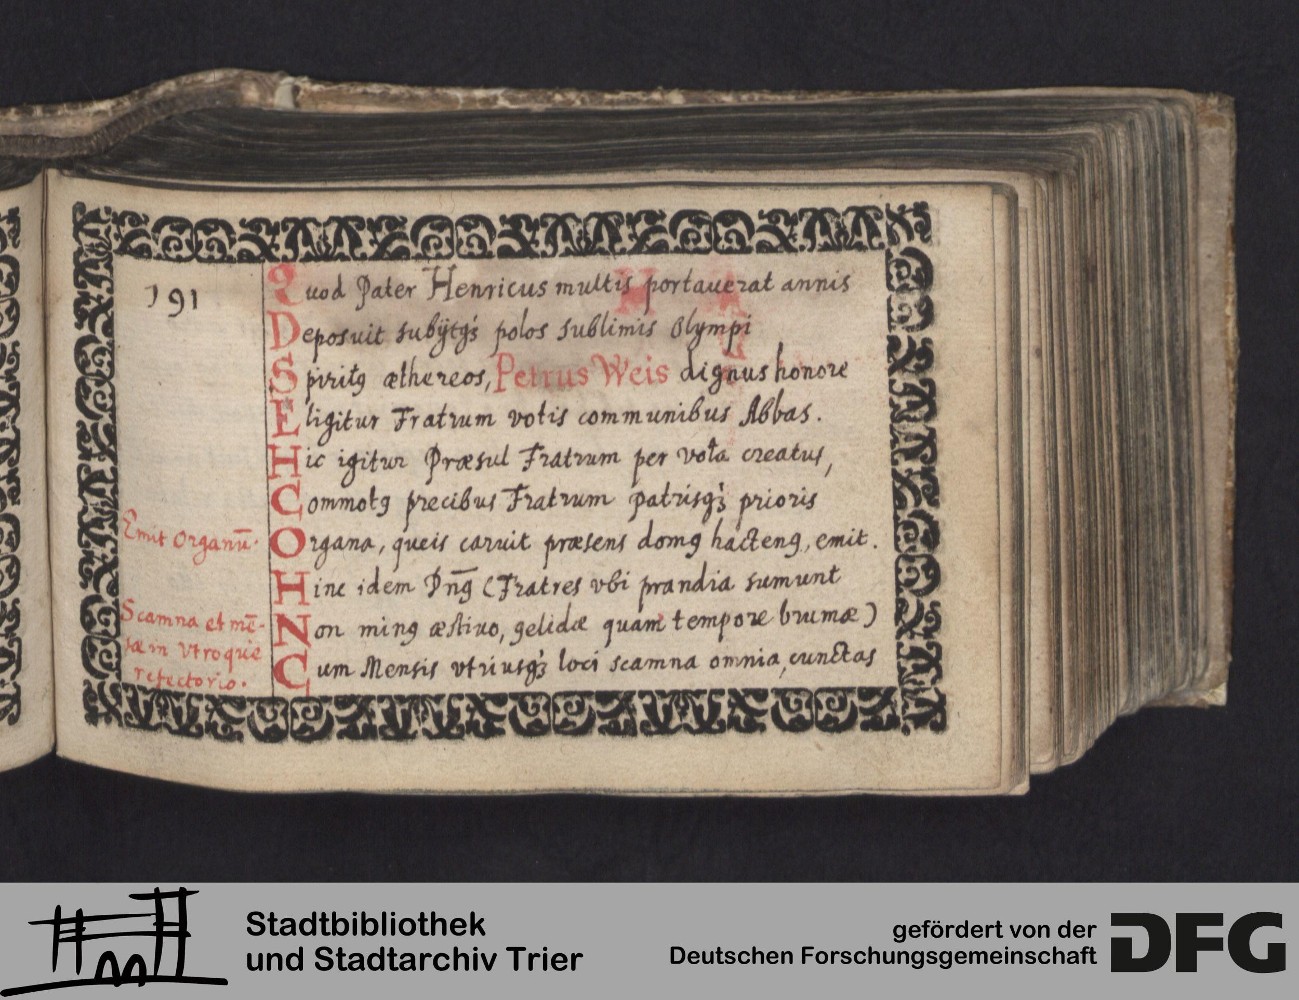 191
Quod Pater Henricus multis portauerat annis
Deposuit subijtqꝫ polos sublimis Olympi
Spiritꝰ æthereos, Petrus Weis dignus honore
Eligitur Fratrum votis communibus Abbas.
Hic igitur Præsul Fratrum per vota creatus,
Commotꝰ precibus Fratrum patrisqꝫ prioris
Emit Organū.
Organa, queis caruit præsens domꝰ hactenꝰ, emit.
Hinc idem Dn̄ꝰ (Fratres vbi prandia sumunt
Scamna et mē-
Non minꝰ æstiuo, gelidæ quam tempore brumæ)
sæ in vtroque
Cum Mensis vtriusqꝫ loci scamna omnia, cunctas
refectorio.
Stadtbibliothek
und Stadtarchiv Trier
gefördert von der
Deutschen Forschungsgemeinschaft
DFG